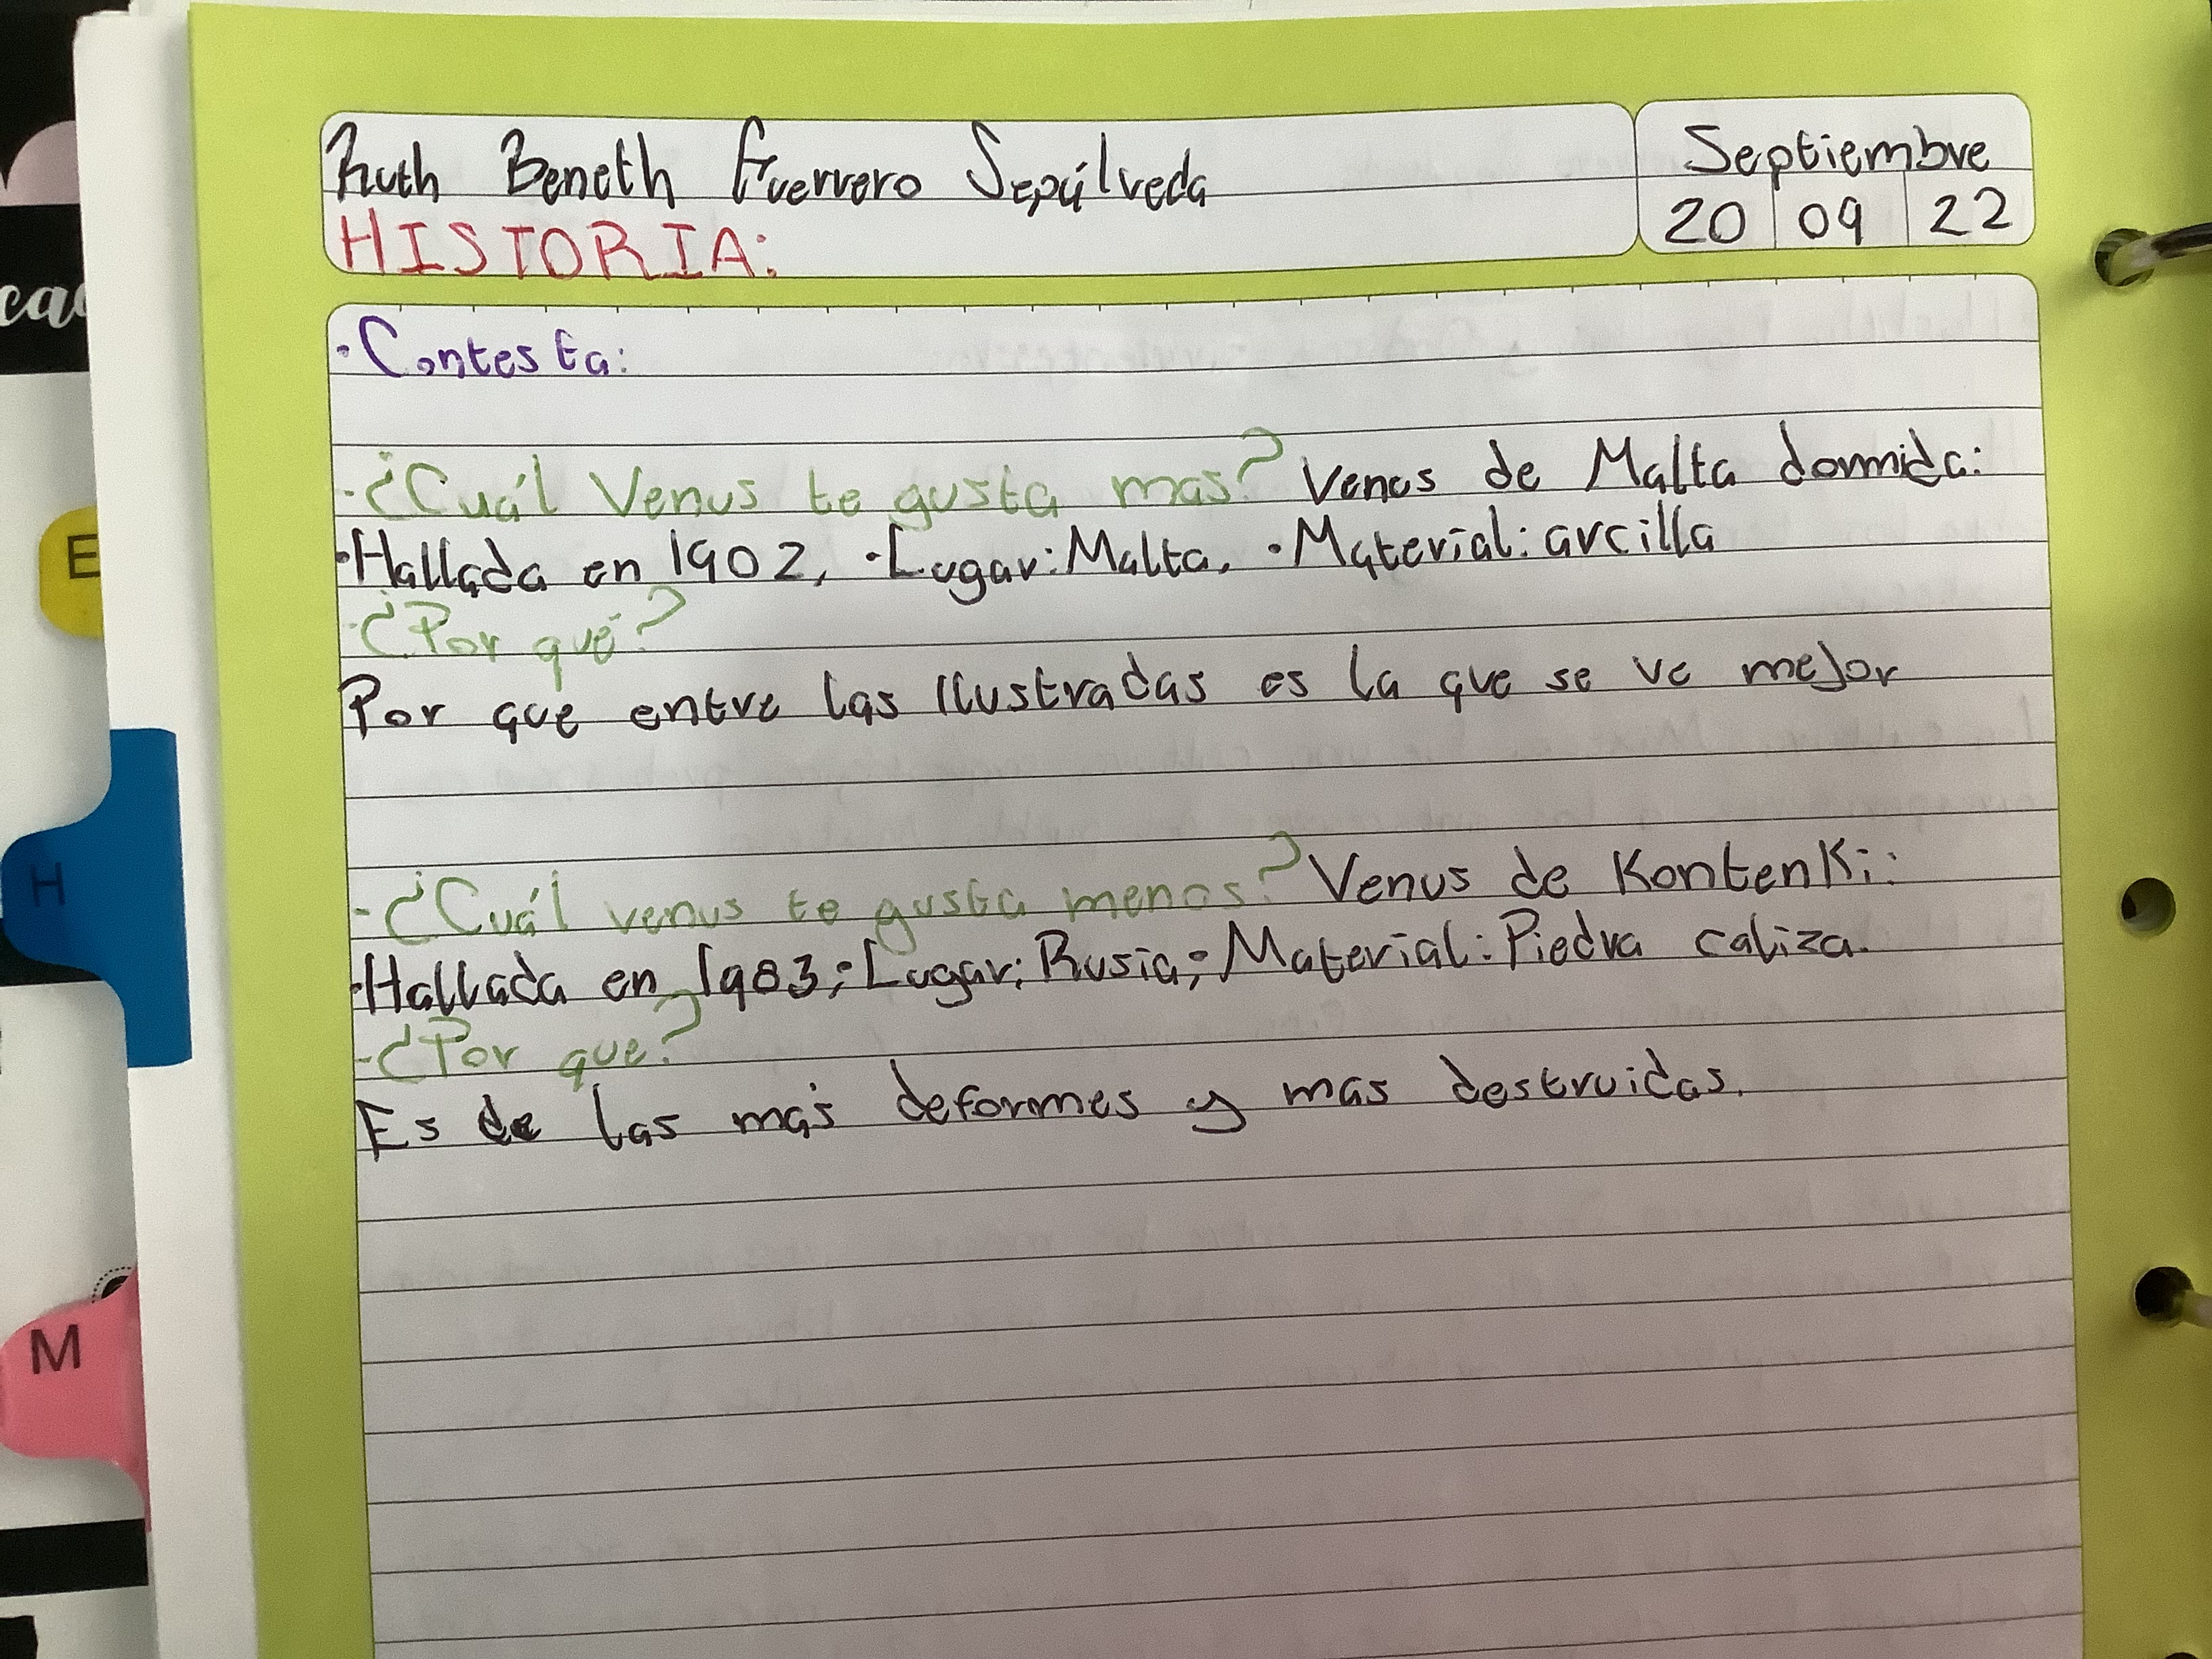 Ruth Beneth Guerrero Sepúlveda
Septiembre
20 09 22
HISTORIA:
·Contesta:
-¿Cuál Venus te gusta mas? Venus de Malta dormida:
·Hallada en 1902, ·Lugar: Malta, ·Material: arcilla
·¿Por qué?
Por que entre las Ilustradas es la que se ve mejor
-¿Cuál venus te gusta menos? Venus de KontenKi:
·Hallada en 1983; Lugar; Rusia; Material: Piedra caliza.
-¿Por que?
Es de las más deformes y mas destruidas.
E
H
M